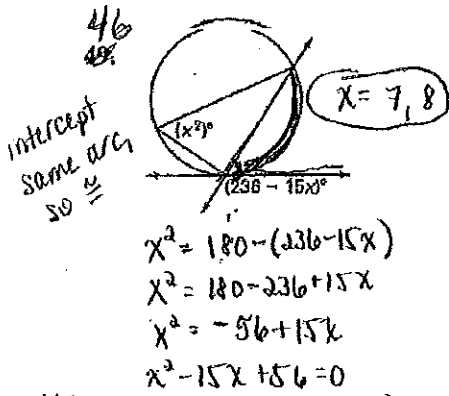 46
x = 7, 8
intercept
same arc,
so ≅
(x²)°
(236 − 15x)°
x² = 180 - (236 - 15x)
x² = 180 - 236 + 15x
x² = -56 + 15x
x² - 15x + 56 = 0